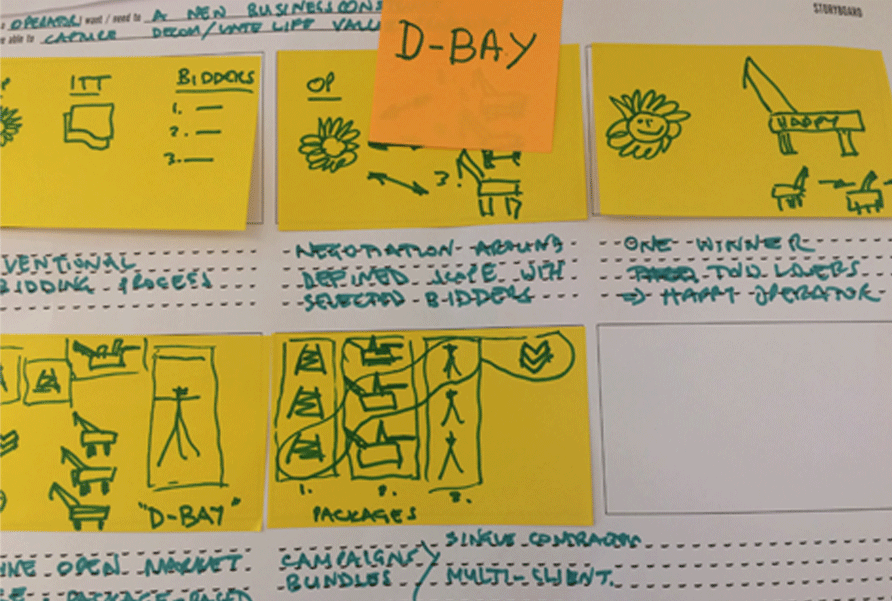 OPERATOR want / need to A NEW BUSINESS
able to CAPTURE DECOM/LATE LIFE
STORYBOARD
D-BAY
ITT
BIDDERS
1.
2.
3.
OP
3.
HAPPY
VENTIONAL
BIDDING PROCESS
NEGOTIATION AROUND
DEFINED SCOPE WITH
SELECTED BIDDERS
ONE WINNER
TWO LOSERS
=> HAPPY OPERATOR
"D-BAY"
1. 2. 3.
PACKAGES
OPEN MARKET
PACKAGE-BASED
CAMPAIGNS/
BUNDLES
SINGLE CONTRACTOR
MULTI-CLIENT